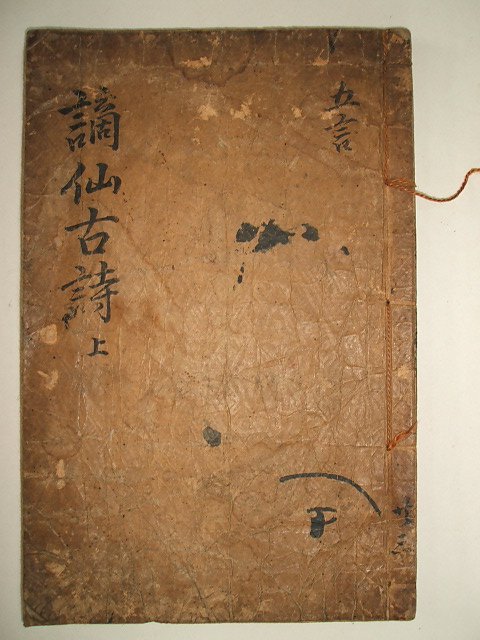 五言
謫仙古詩 上